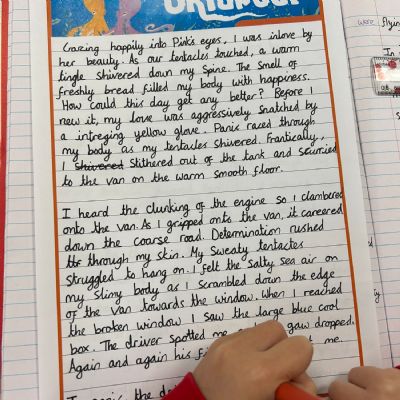 Gazing happily into Pink's eyes, I was inlove by
her beauty. As our tentacles touched, a warm
tingle shivered down my spine. The smell of
freshly bread filled my body with happiness.
How could this day get any better? Before I
new it, my love was aggressively snatched by
a intreging yellow glove. Panic raced through
my body as my tentacles shivered. Frantically,
I shivered slithered out of the tank and scurried
to the van on the warm smooth floor.
I heard the clunking of the engine so I clambered
onto the van. As I gripped onto the van, it careered
down the coarse road. Determination rushed
through my skin. My sweaty tentacles
struggled to hang on. I felt the salty sea air on
my slimy body as I scrambled down the edge
of the van towards the window. When I reached
the broken window I saw the large blue cool
box. The driver spotted me jaw dropped.
Again and again his me.
the